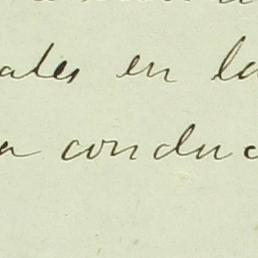 ales en la
a conduc